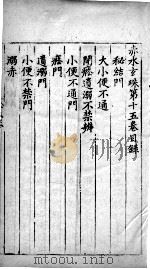 赤水玄珠第十五卷目錄
秘結門
大小便不通
閉癃遺溺不禁辨
小便不通門
癃門
遺溺門
小便不禁門
溺赤
mtoou.info
mtoou.info